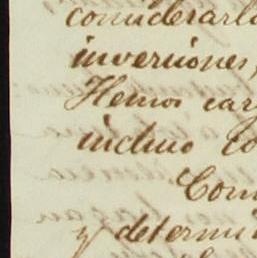 considerarlo
inversiones,
Hemos car
incluso lo
Com
y determi